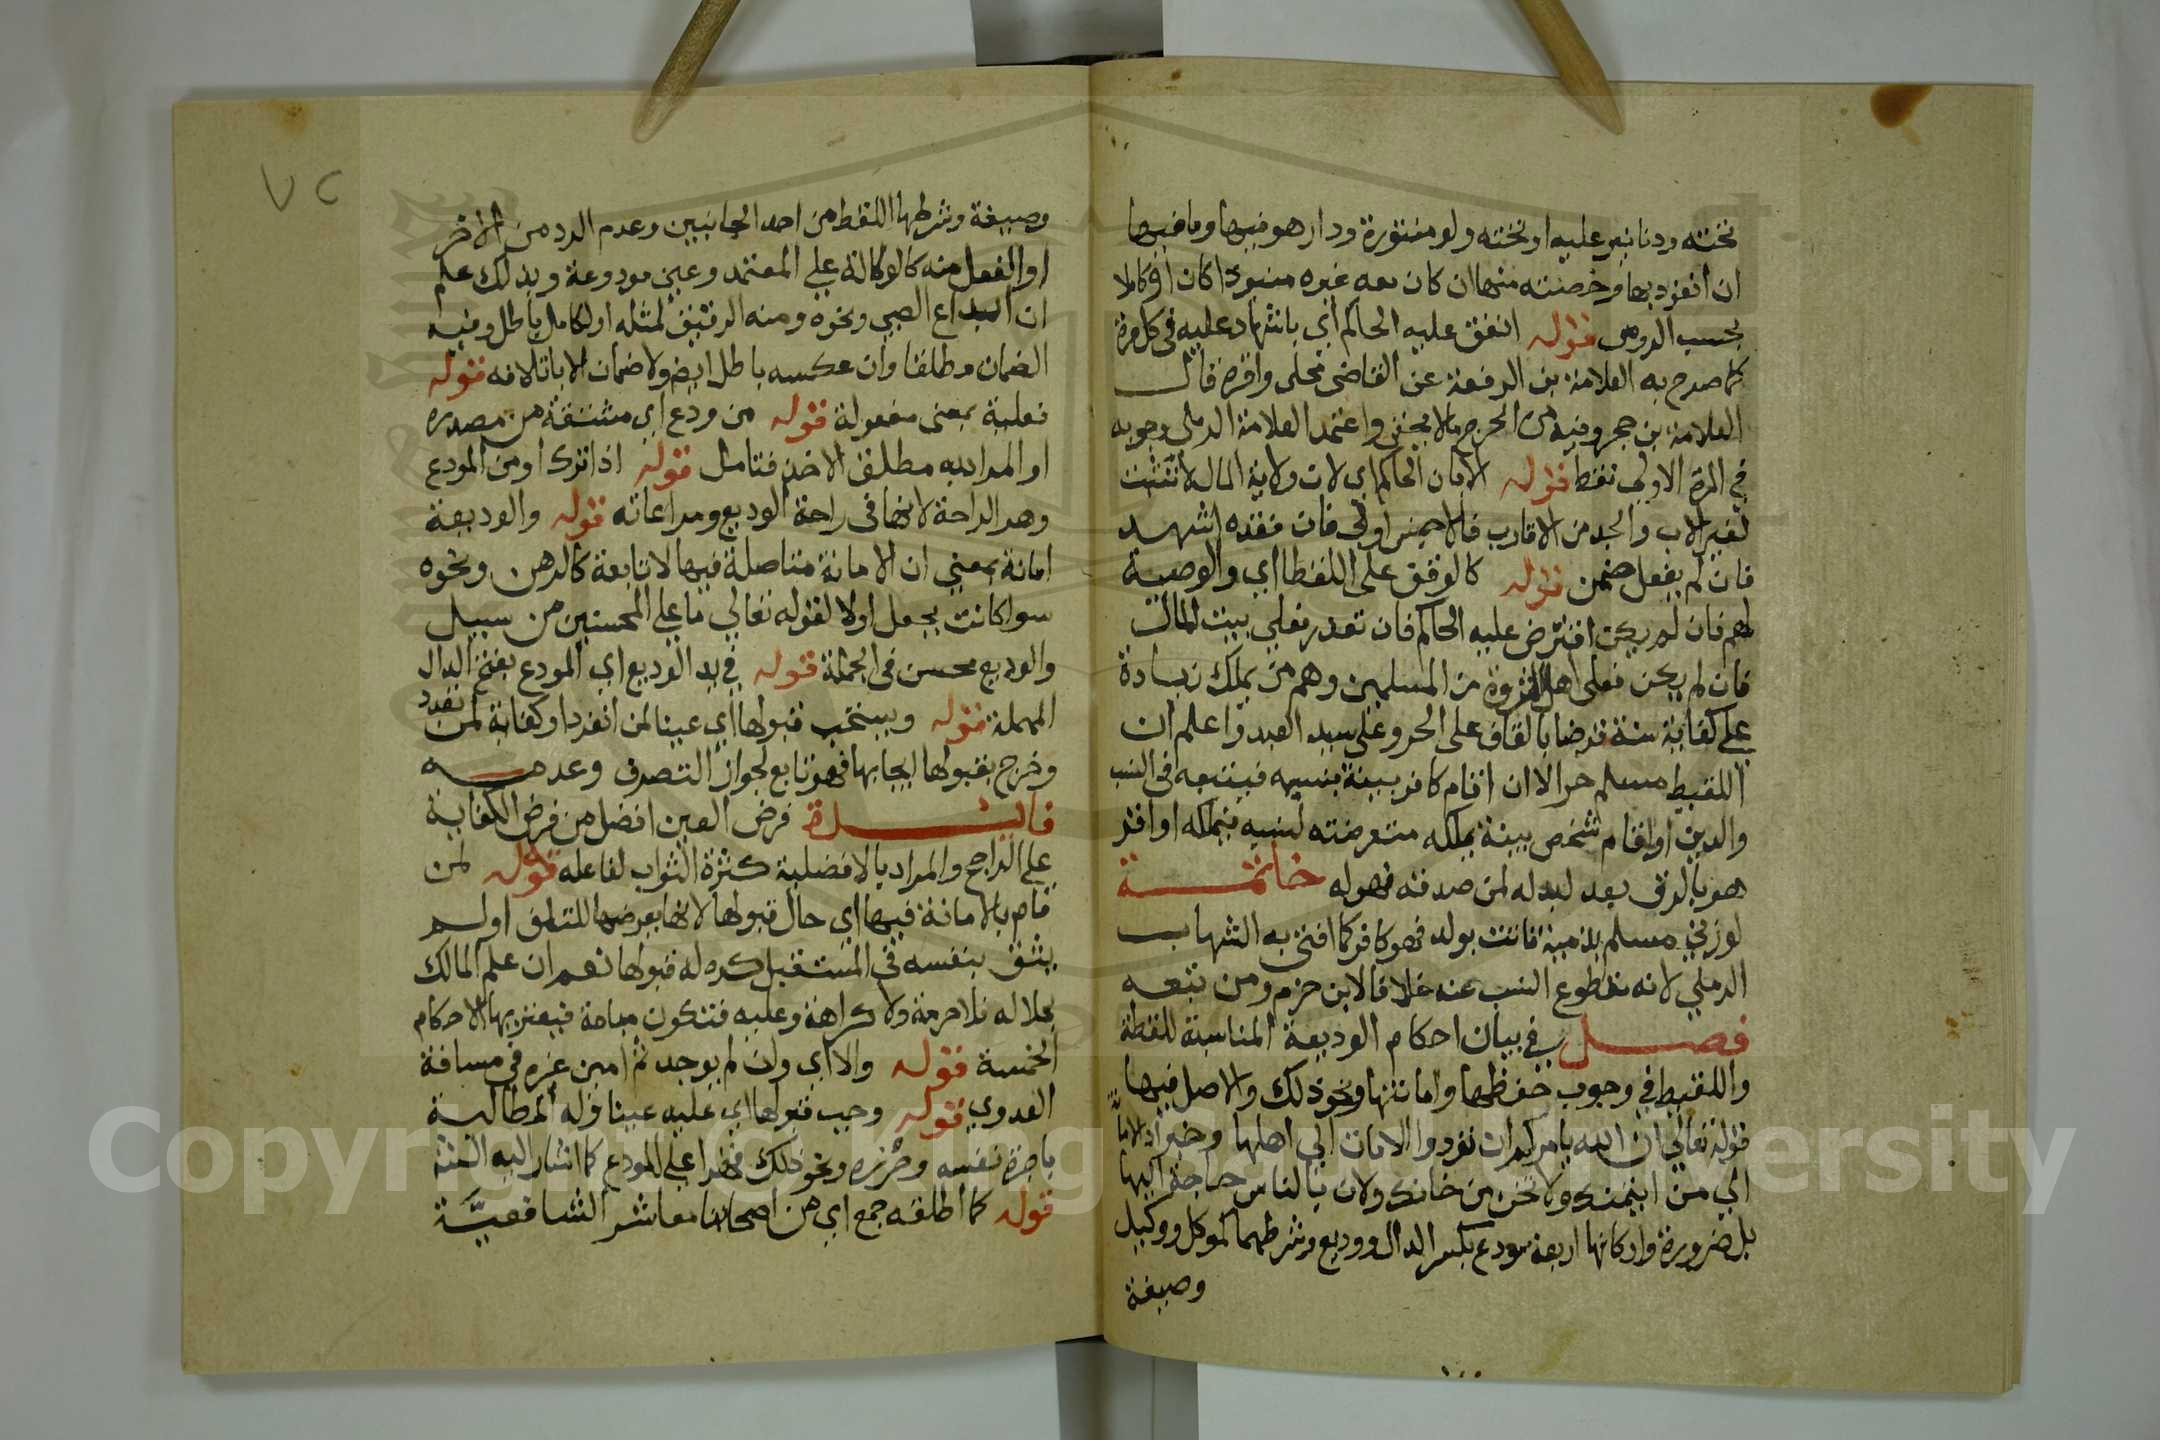 تحته ودنانير عليه او تحته ولو منثورة ودار هو فيها وما فيها
ان انفرد بها وحصته منها ان كان معه غيره مميزا كان او كاملا
بحسب الروس قوله انفق عليه الحاكم اي باشهاد عليه في كل مرة
كما صرح به العلامة بن الرفعة عن القاضي مجلي واقره قال
العلامة بن حجر وفيه من الحرج ما لا يخفى واعتمد العلامة الرملي وجوبه
في المرة الاولى فقط قوله الاباذن الحاكم اي لان ولاية المال لا تثبت
لغير الاب والجد من الاقارب فالاجنبي اولى فان فقده اشهد
فان لم يفعل ضمن قوله كالوقف على اللقطا اي والوصية
لهم فان لم يكن اقترض عليه الحاكم فان تعذر فعلى بيت المال
فان لم يكن فعلى اهل الثروة من المسلمين وهم من يملك زيادة
على كفاية سنة قرضا بالقاف على الحر وعلى سيد العبد واعلم ان
اللقيط مسلم حر الا ان اقام كافر بينة بنسبه فيتبعه في النسب
والدين او اقام شخص بينة بملكه متعرضة لسببه فيملكه او اقر
هو بالرق بعد لمن صدقه فهو له خاتمة
لو زنى مسلم بذمية فاتت بولد فهو كافر كما افتى به الشهاب
الرملي لانه مقطوع النسب عنه خلافا لابن حزم ومن تبعه
فصل في بيان احكام الوديعة المناسبة للقطة
واللقيط في وجوب حفظها وامانتها ونحو ذلك والاصل فيها
قوله تعالى ان الله يامركم ان تودوا الامانات الى اهلها وخبر اد الامانة
الى من ايتمنك ولا تخن من خانك ولان بالناس حاجة اليها
بل ضرورة واركانها اربعة مودع بكسر الدال ووديع وشرطهما كموكل ووكيل
وصيغة
٧٢
وصيغة وشرطها اللفظ من احد الجانبين وعدم الرد من الاخر
او الفعل منه كالوكالة على المعتمد وعين مودوعة وبذلك علم
ان ايداع الصبي ونحوه ومنه الرقيق لمثله او لكامل باطل وفيه
الضمان مطلقا وان عكسه باطل ايضا ولا ضمان الا باتلافه قوله
فعيلة بمعنى مفعولة قوله من ودع اي مشتقة من مصدره
او المراد به مطلق الاخذ فتامل قوله اذا ترك او من المودع
وهو الراحة لانها في راحة الوديع ومراعاته قوله والوديعة
امانة بمعنى ان الامانة متاصلة فيها لا تابعة كالرهن ونحوه
سوا كانت بجعل او لا لقوله تعالى ما على المحسنين من سبيل
والوديع محسن في الجملة قوله في يد الوديع اي المودع بفتح الدال
المهملة قوله ويستحب قبولها اي عينا لمن انفرد او كفاية لمن تعدد
وخرج بقبولها ايجابها فهو تابع لجواز التصرف وعدمه
فائدة فرض العين افضل من فرض الكفاية
على الراجح والمراد بالافضلية كثرة الثواب لفاعله قوله لمن
قام بالامانة فيها اي حال قبولها لانها يعرضها للتلف او لم
يثق بنفسه في المستقبل كره له قبولها نعم ان علم المالك
بحاله فلا حرمة ولا كراهة وعليه فتكون مباحة فيعتريها الاحكام
الخمسة قوله والا اي وان لم يوجد ثم امين غيره في مسافة
العدوى قوله وجب قبولها اي عليه عينا وله المطالبة
باجرة نفسه وحرزه ونحو ذلك قهرا على المودع كما اشار اليه الش
قوله كما اطلقه جمع اي من اصحابنا معاشر الشافعية
Copyright © King Saud University